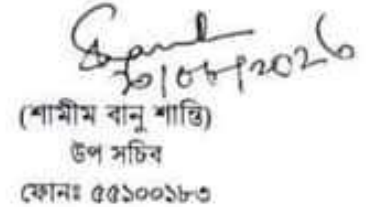 (শামীম বানু শান্তি)
উপ সচিব
ফোনঃ ৫৫১০০১৮৩